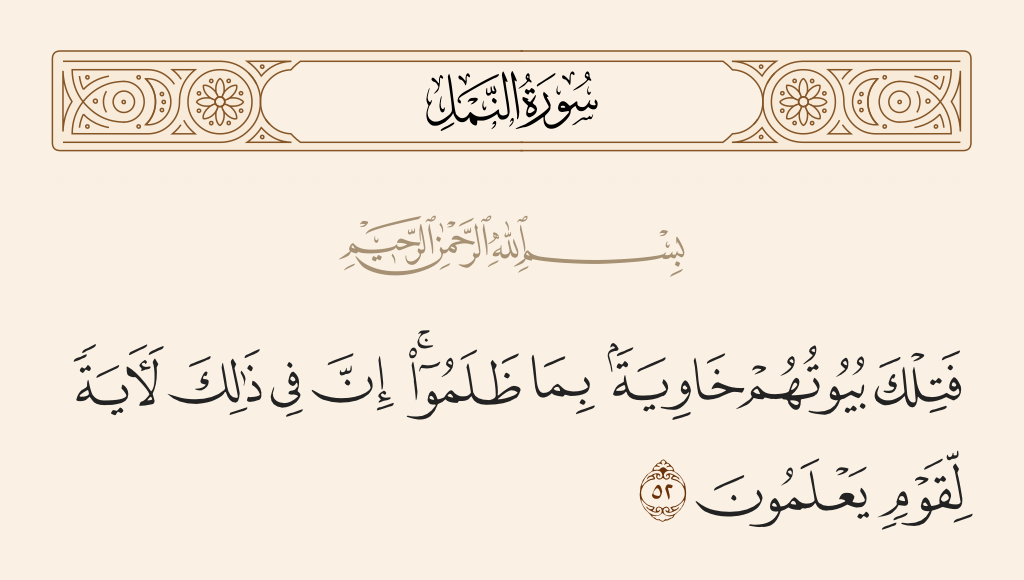 سُورَةُ النَّمْلِ
بِسْمِ ٱللَّهِ ٱلرَّحْمَٰنِ ٱلرَّحِيمِ
فَتِلْكَ بُيُوتُهُمْ خَاوِيَةًۢ بِمَا ظَلَمُوٓا۟ ۚ إِنَّ فِى ذَٰلِكَ لَـَٔايَةً
لِّقَوْمٍ يَعْلَمُونَ ٥٢